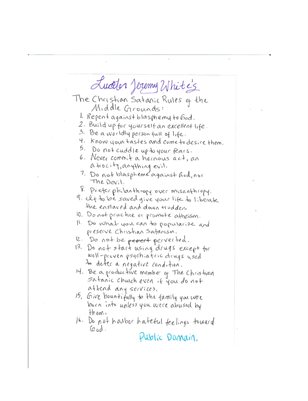 Lucifer Jeremy White's
The Christian Satanic Rules of the
Middle Grounds:
1. Repent against blasphemy to God.
2. Build up for yourself an excellent life
3. Be a worldly person full of life.
4. Know your tastes and come to desire them.
5. Do not cuddle up to your fears.
6. Never commit a heinous act, an
atrocity, anything evil.
7. Do not blaspheme against God, nor
The Devil.
8. Prefer philanthropy over misanthropy.
9. Up to be saved give your life to liberate
the enslaved and down trodden.
10. Do not practice or promote atheism.
11. Do what you can to popularize and
preserve Christian Satanism.
12. Do not be perverted.
13. Do not start using drugs except for
well-proven psychiatric drugs used
to deter a negative condition.
14. Be a productive member of The Christian
Satanic Church even if you do not
attend any services.
15. Give bountifully to the family you were
born into unless you were abused by
them.
16. Do not harbor hateful feelings toward
God.
Public Domain.